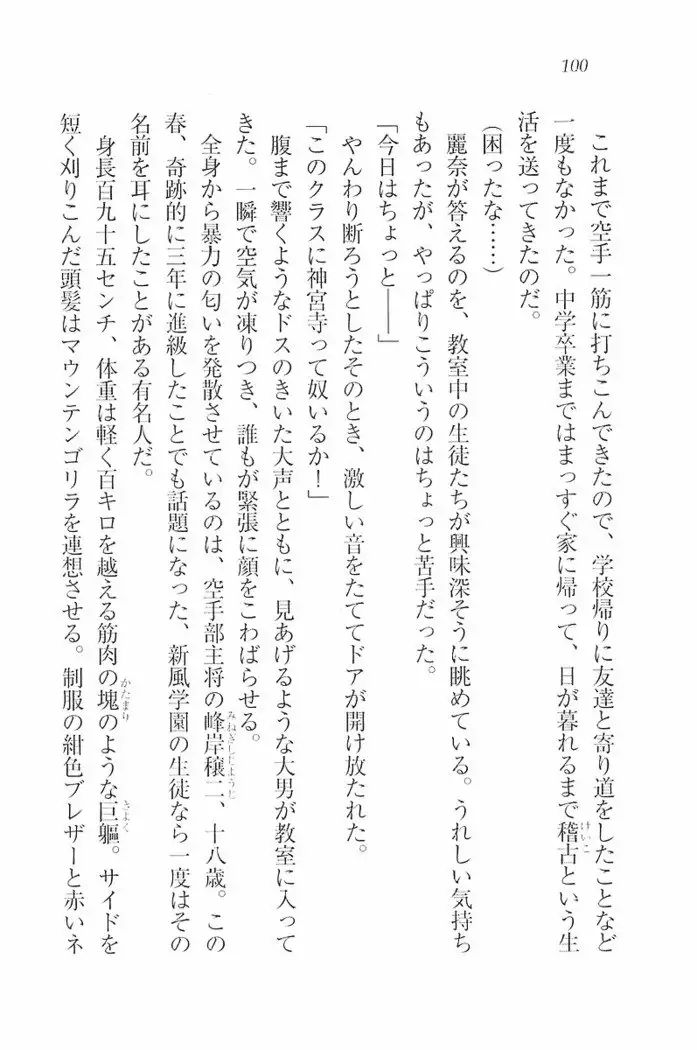 100
これまで空手一筋に打ちこんできたので、学校帰りに友達と寄り道をしたことなど
一度もなかった。中学卒業まではまっすぐ家に帰って、日が暮れるまで稽古という生
活を送ってきたのだ。
(困ったな……)
麗奈が答えるのを、教室中の生徒たちが興味深そうに眺めている。うれしい気持ち
もあったが、やっぱりこういうのはちょっと苦手だった。
「今日はちょっと――」
やんわり断ろうとしたそのとき、激しい音をたててドアが開け放たれた。
「このクラスに神宮寺って奴いるか!」
腹まで響くようなドスのきいた大声とともに、見あげるような大男が教室に入って
きた。一瞬で空気が凍りつき、誰もが緊張に顔をこわばらせる。
全身から暴力の匂いを発散させているのは、空手部主将の峰岸穣二、十八歳。この
春、奇跡的に三年に進級したことでも話題になった、新風学園の生徒なら一度はその
名前を耳にしたことがある有名人だ。
身長百九十五センチ、体重は軽く百キロを越える筋肉の塊のような巨軀。サイドを
短く刈りこんだ頭髪はマウンテンゴリラを連想させる。制服の紺色ブレザーと赤いネ